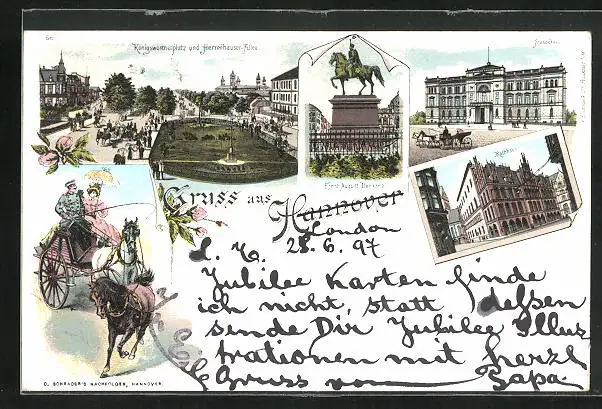 Königswortherplatz und Herrenhauser-Allee
Ernst August Denkmal
Rathhaus
Gruss aus Hannover
London
28. 6. 97
L. H.
Jubilee Karten finde
ich nicht, statt dessen
sende Dir Jubilee Illus
trationen mit herzl
Gruss von Papa.
O. SCHRADER'S NACHFOLGER, HANNOVER.